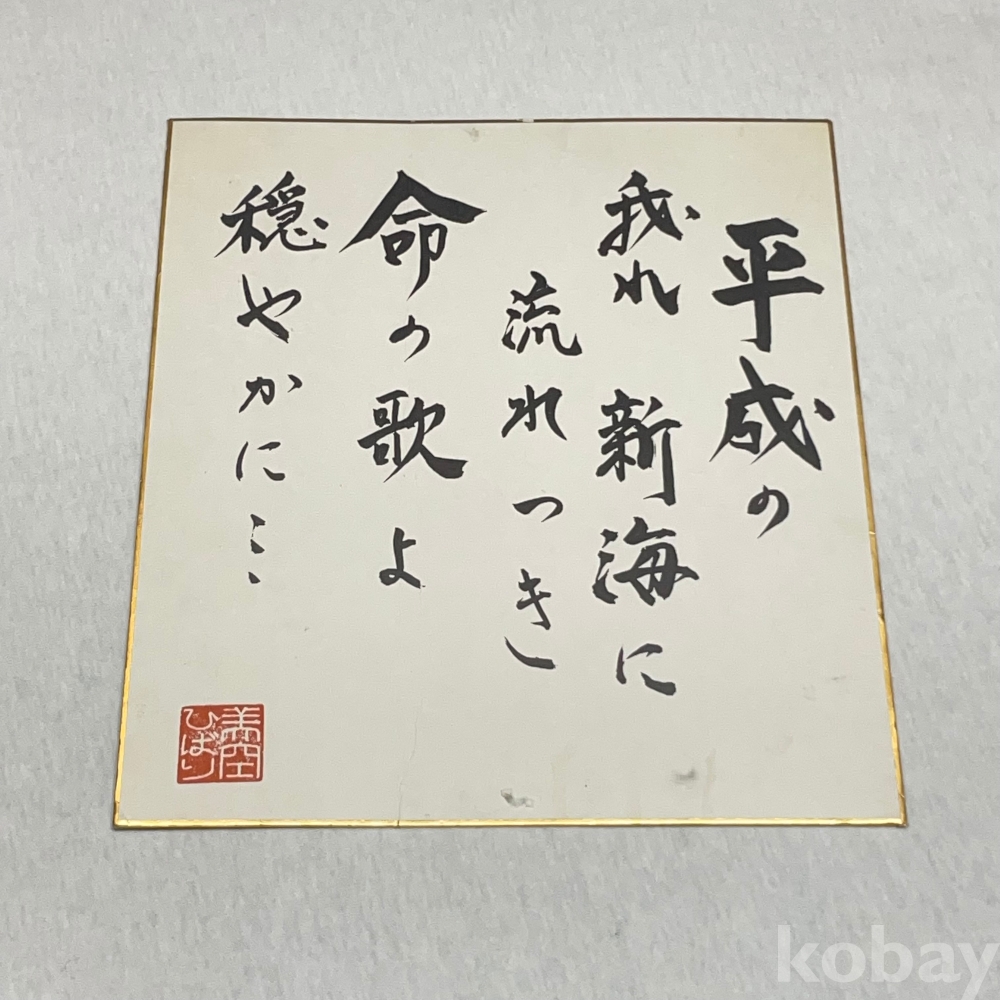 平成の
我れ 新海に
流れつき
命の歌よ
穏やかに…
美空
ひばり
kobay